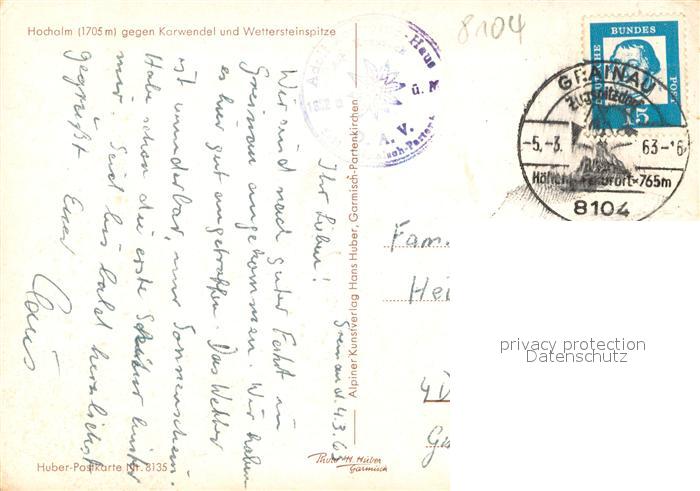 Hochalm (1705 m) gegen Karwendel und Wettersteinspitze
8104
Grainau d. 4.3.63
Ihr Lieben!
Wir sind nach guter Fahrt in
Grainau angekommen. Wir haben
es hier gut angetroffen. Das Wetter
ist wunderbar, nur Sonnenschein.
Habe schon die erste hinter
mir. Seid bis bald herzlichst
gegrüßt. Euer
Claus
Huber-Postkarte Nr. 8135
Photo H. Huber
Garmisch
Alpiner Kunstverlag Hans Huber, Garmisch-Partenkirchen
Haus
ü. M
A. V.
DEUTSCHE BUNDES POST
15
GRAINAU
Zugspitzdorf
-5.-3. 63-16
765m
8104
Fam.
Hei
privacy protection
Datenschutz